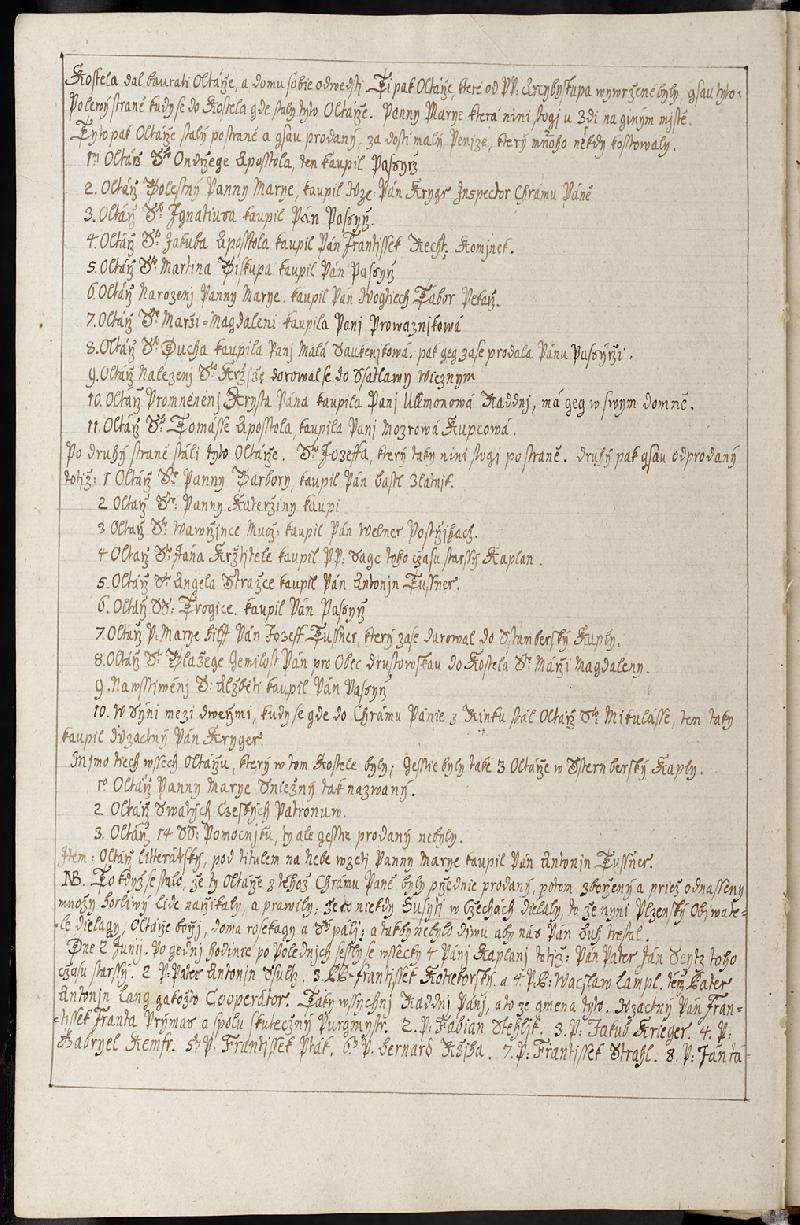 Kostela dal taurati Oltárze, a domu sobie odwedsti. Ti pak Oltárze, které od PP. Arcybyskupa wywrzené byly, gsau tyto.
Po lewý straně kudy se do Kostela gde staly tyto Oltárze. Panny Marye, která nini stogj u Zdi na giným mjstě.
Tyto pak Oltárze stalý po straně a gsau prodaný, za dosti malý Penjze, který mnoho někdy kosstowaly.
1mj Oltárz Sho Ondrzege Aposstola, ten kaupil Passyrz
2. Oltárz Bolestný Panny Marye, kaupil Wzc: Pán Kryger Inspector Chrámu Páně
3. Oltárz Sho Jgnatiusa kaupil Pán Passyrz.
4. Oltárz Sho Jakuba Aposstola kaupil Pán Frantissek Kecht, Komjnek.
5. Oltárz Sho Martina Biskupa kaupil Pán Passyrz
6. Oltárz Narozenj Panny Marye, kaupil Pán Wogtiech Tábor Pekarz.
7. Oltárz Sho Marzi=Magdaleni kaupila Panj Prowaznjkowá
8. Oltárz Sho Ducha kaupila Panj Malá Saukenjkowá, pak geg zase prodala Pánu Passyrzi.
9. Oltárz Nalezenj Sho Krzjže dorowal se do Ssatlawy Wieznym
10. Oltárz Promněněnj Krysta Pána kaupila Panj Ullmonowá Raddnj, má geg w swym domně.
11. Oltárz Sho Tomásse Aposstola, kaupila Panj Mozrowá Kupcowá.
Po druhý straně stáli tyto Oltárze. Sho Jozeffa, který taky nini stogj po straně. druhý pak gsau odprodaný
totiž: 1 Oltárz Sho Panny Barbory, kaupil Pán bastl Zlatnjk.
2 Oltarz Sho: Panny Katerziny kaupi
3 Oltarz Sho Wawrzince Mucz: kaupil Pán Welner Postrzihacz.
4 Oltarz Sho Jána Krztitele kaupil PP: Sage toho czasu starssý Kaplan.
5. Oltárz Sho Angela Strážce kaupil Pán Antonjn Tussner.
6. Oltárz SS: Trogice, kaupil Pán Passyrz
7. Oltarz P: Marye hilff Pán Jozeff Tussner, který zase darowal do Sstemberský Kaply.
8. Oltárz Sho Blažege Gemilost Pán pro Obec drustowskau do Kostela Sho Márzi Magdaleny.
9. Nawsstiwěnj S: Alžběti kaupil Pán Passyrz
10. W Sýni mezi dwerzmi, kudy se gde do Chrámu Pánie z Rinku stál Oltárz Sho Mikulásse, ten taky
kaupil Wzáctný Pán Kryger.
Mimo tiech wssech Oltárzu, který w tom Kostele byly, gesstie byly také 3 Oltárze w Sstemberský Kaply.
1o Oltárz Panny Marye Sniežný tak nazwaný.
2. Oltárz Swatých Czeskych Patronuw.
3. Oltárz 14 SS: Pomocnjku, ty ale gesstie prodaný nebyly.
Item: Oltárz litterátský, pod titulem na Nebe wzetj Panny Marye kaupil Pán Antonjn Tussner.
NB. To když se stalo, že ty Oltárze z tehož Chrámu Páně byly prziednie prodaný, potom zborzený a priez odnassený
mnozy horliwý lidé narzikaly, a prawily; že to niekdy Husyti w Czechách dielaly, to že nyni Plzenský Obýwate=
=lé dielagy, Oltárze borzj, doma rozsekagy a SS pálj; a takby nebylo diwu aby nás Pán Buh trestal.
Dne 2 Junij. Po gedný hodinie po Polednjch sessly se wssecky 4 Pánj Kaplanj totiž: Pán Páter Ján Sentz toho
czasu starssý. 2 P: Páter Antonjn Sultz. 3. PP: Frantissek Kotterowský a 4. P.P: Wacslaw Lampl. tez Páter
Antonjn Lang gakožto Cooperátor. Táky wssychnj Raddnj Pánj, a to ze gmena tyto. Wzáctný Pán Fran=
=tissek Franta Prýmas a spolu skutecžný Purgmystr. 2. P: Fabian Stehljk. 3. P: Jakub Krieger. 4. P:
Gabryel Kemfr. 5tý P. Frantissek Pták. 6tý P. Bernard Ržiha. 7. P: Frantissek Strahl. 8. P: Ján Ta=